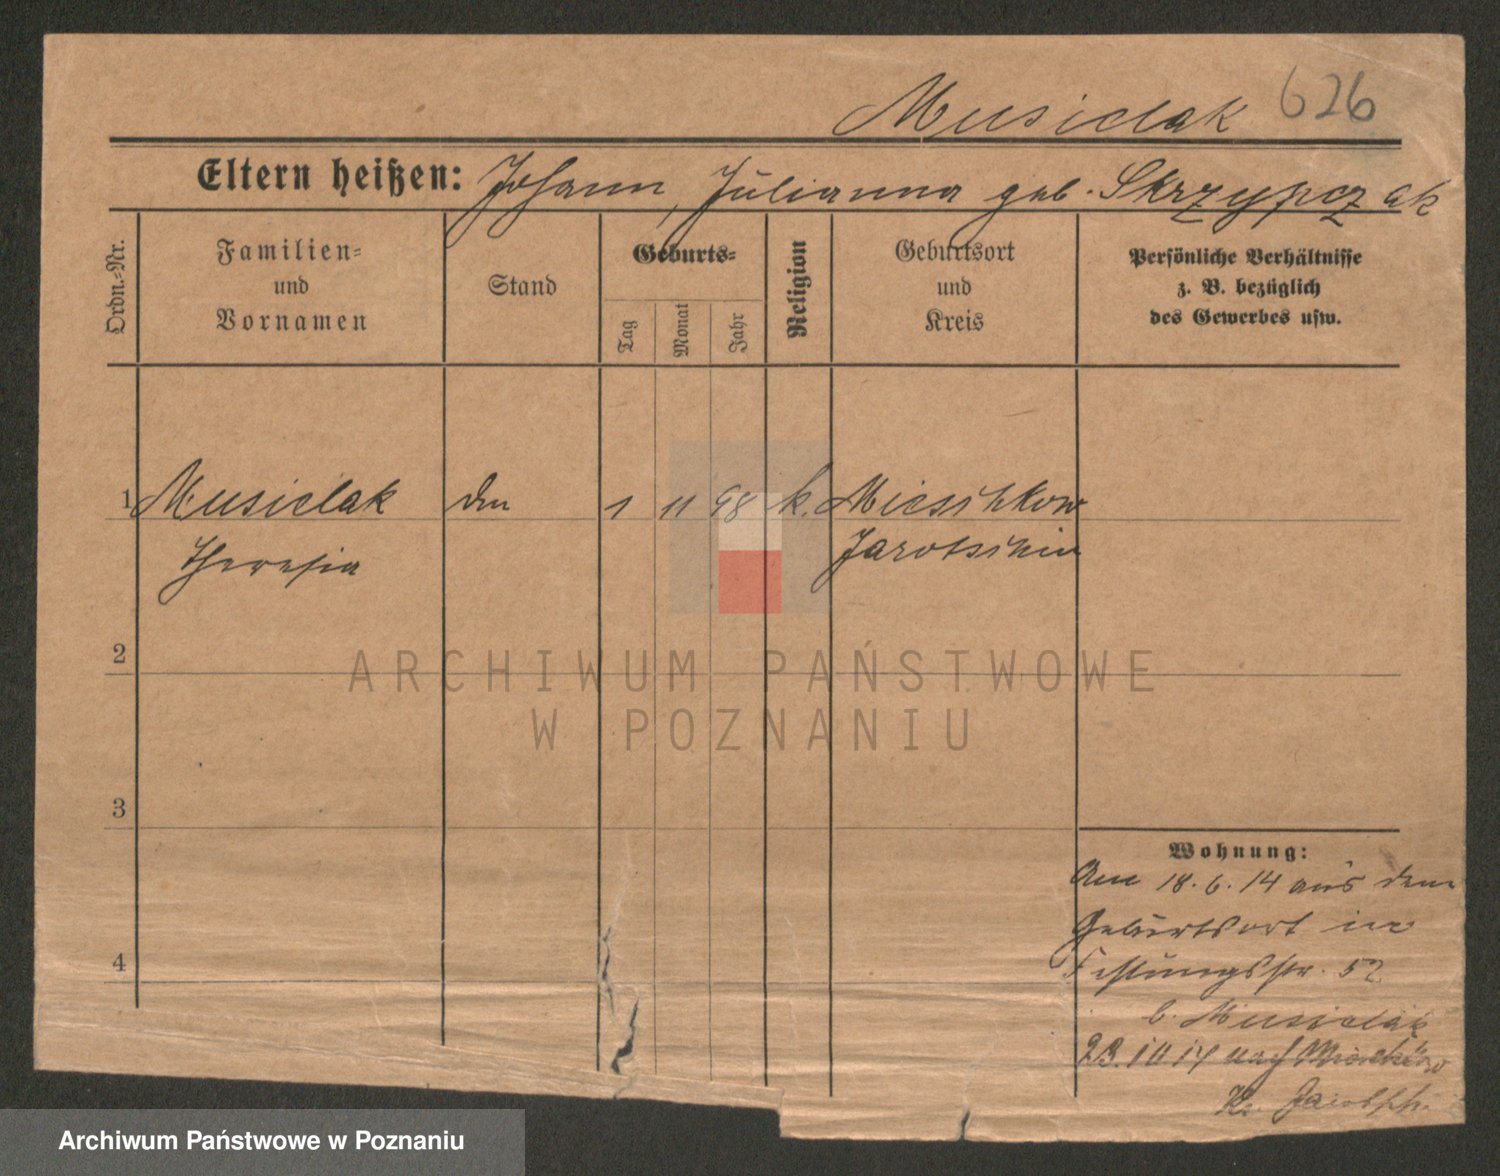 Musielak 626
Eltern heißen: Johann, Julianna geb. Skrzypczak
Ordn.-Nr.
Familien-
und
Vornamen
Stand
Geburts-
Tag
Monat
Jahr
Religion
Geburtsort
und
Kreis
Persönliche Verhältnisse
z. B. bezüglich
des Gewerbes usw.
1 Musielak 1 11 98 k. Mieschkow
Theresia Jarotschin
2
ARCHIWUM PAŃSTWOWE
W POZNANIU
3
Wohnung:
Am 18.6.14 aus dem
Geburtsort in
Festungsstr. 52
4
b. Musielak
23.10.14 nach Mieschkow
Kr. Jarotsch.
Archiwum Państwowe w Poznaniu